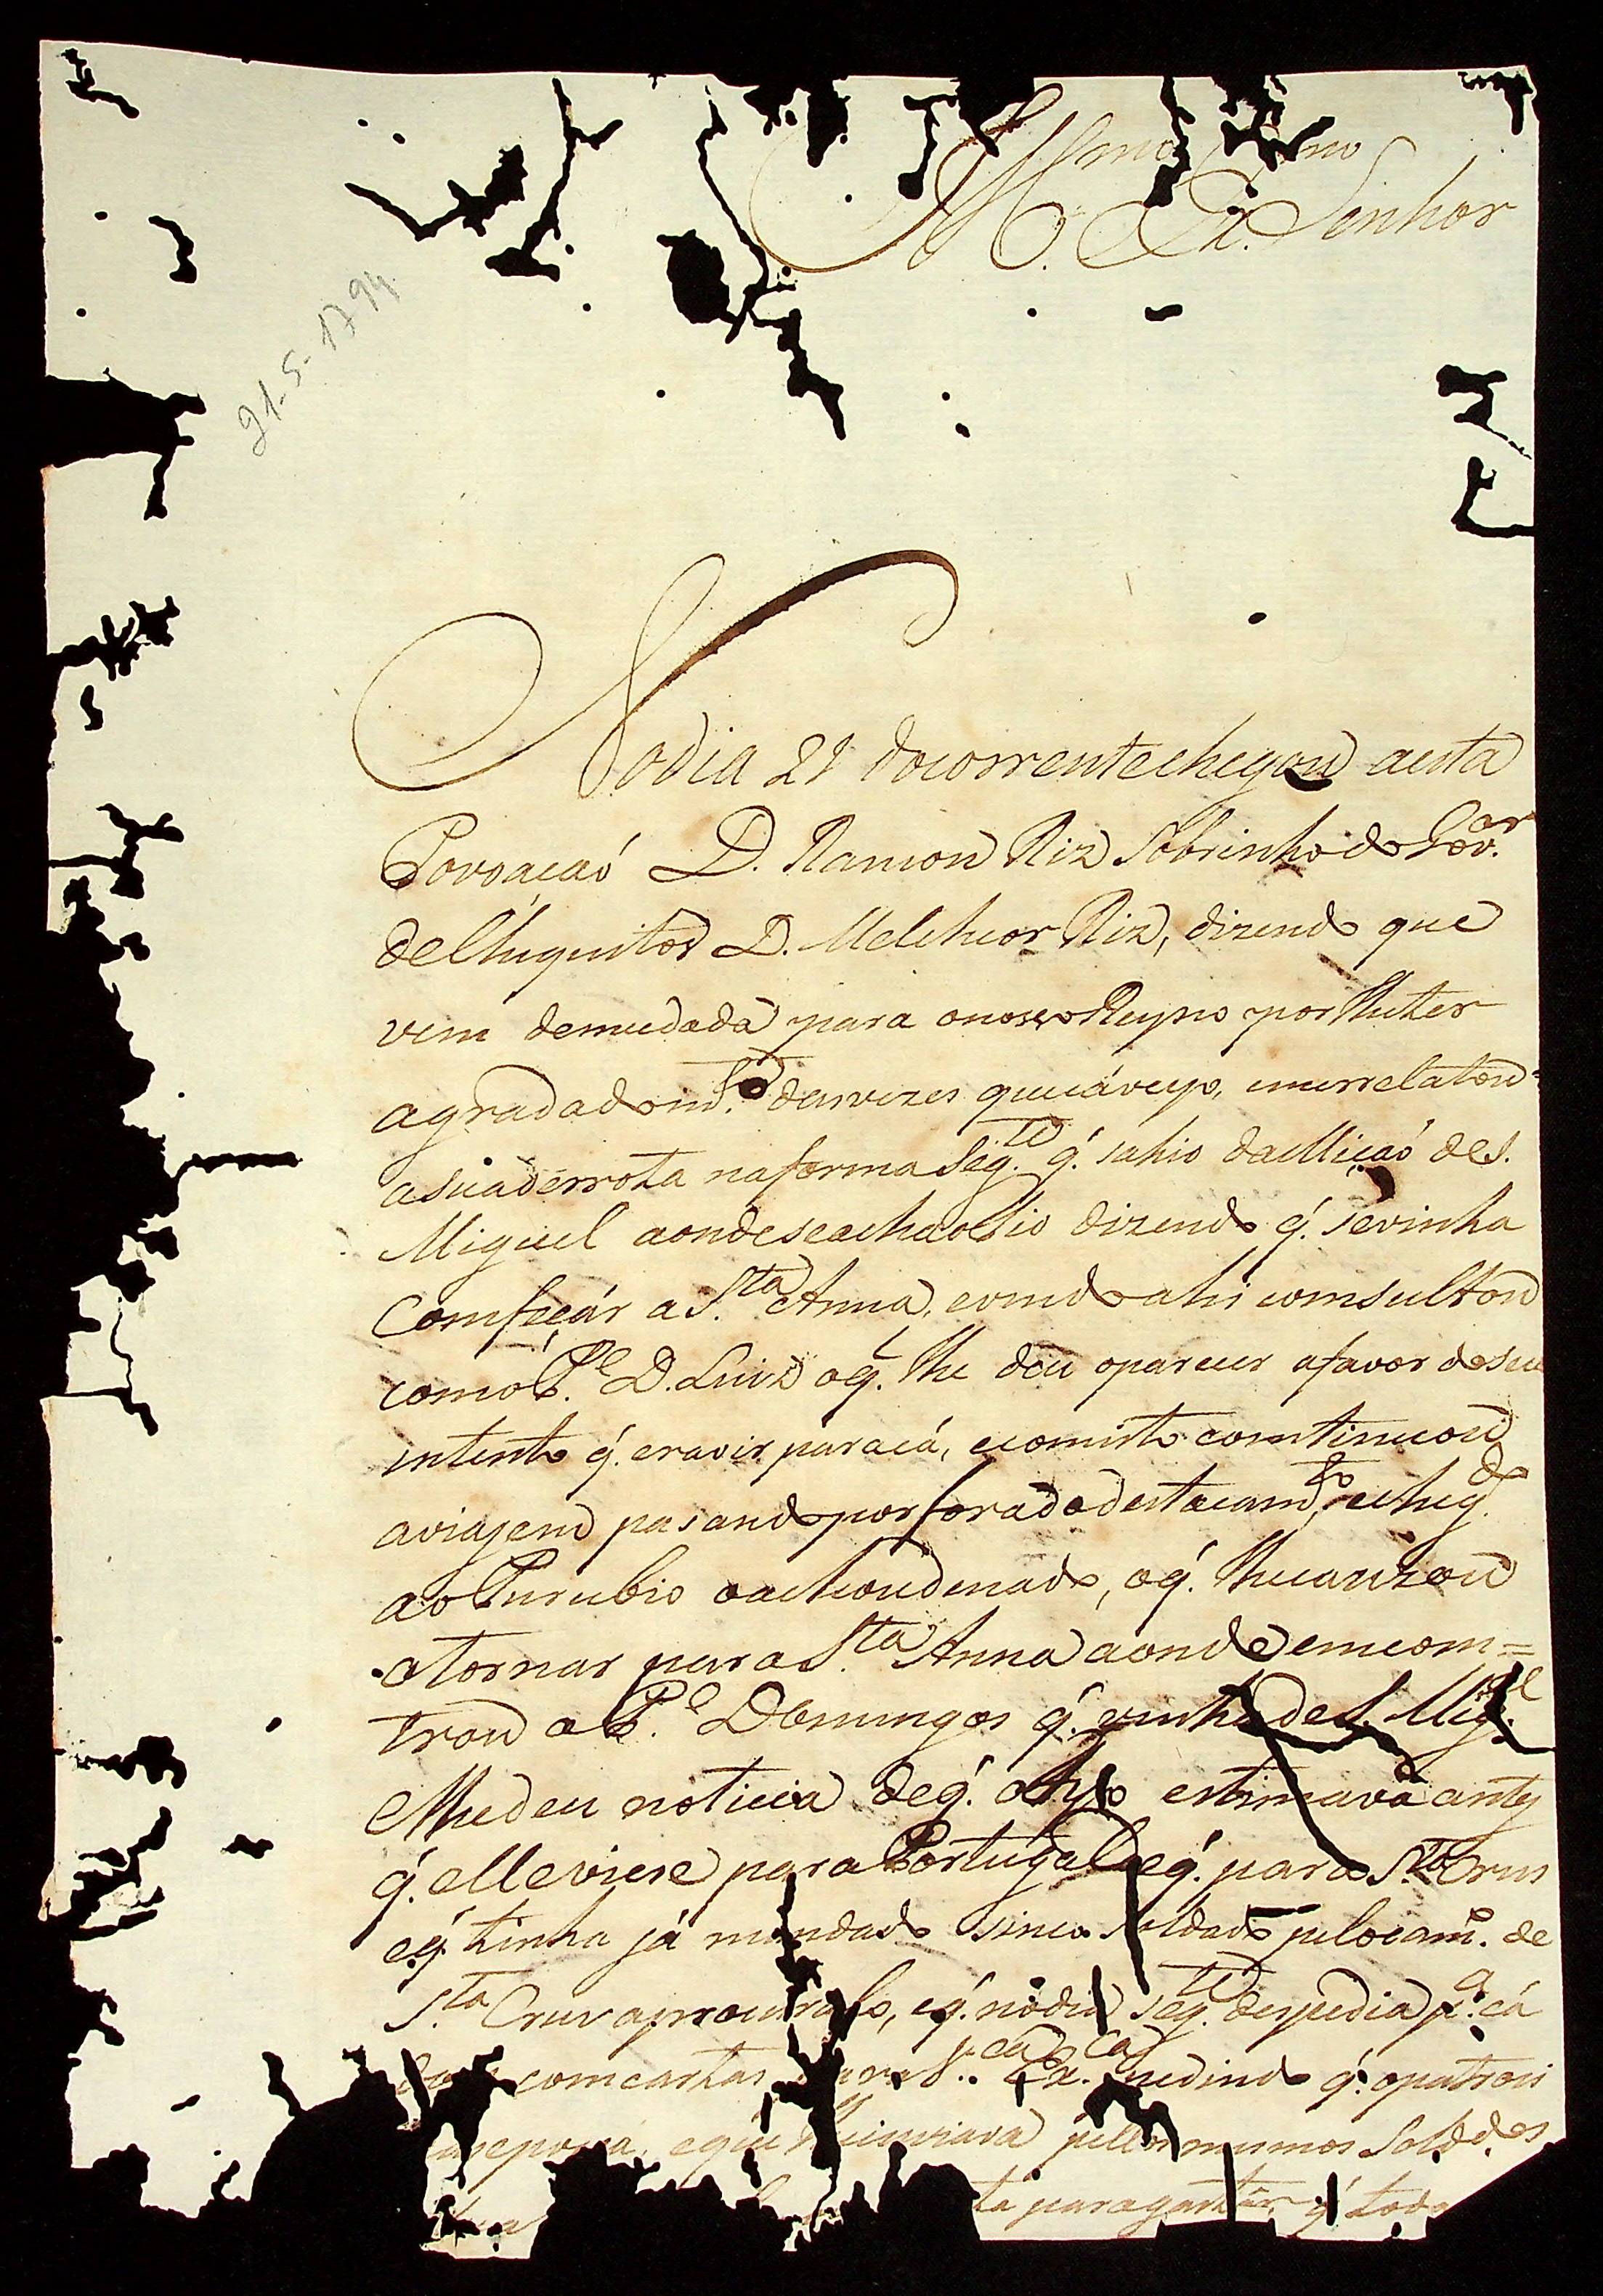 Illmo Exmo
Senhor
21-5-1794
No dia 21 do corrente chegou aesta
Povoacaó D. Ramon Riz Sobrinho do Gov.or
de Chiquitos D. Melchor Riz, dizendo que
vem demudada para onosso Reyno por lhe ter
agradado m.to das vezes que cá veyo, eme rrelatou
asuaderrota naforma Seg.te q. sahio da Micaó de S.
Miguel aonde seachao tio dizendo q. sevinha
Comfeçár a S.ta Anna, evindo ahi comsultou
como P.e D. Luiz oq. lhe deu oparecer afavor do seu
intento q. eravir paracá, ecomisto comtinuou
aviagem pasando por fora do destacam.to, echeg.do
ao Purubio oachou denado, oq. lhe cauzou
atornar para S.ta Anna aonde emcom=
trou o P.e Domingos q. vinha de S. Mig.el
elhe deu noticia deq. o tyo estimava antes
q. elle viese para Portugal eq. para S.ta Crus
eq. tinha já mandado sinco soldados pelo cam.o de
S.ta Crus aprocuralo, eq. no dia seg.te despedia p.a cá
com cartas para S. Ex.ca pedindo q. opatroci
epora, eque lhe inviava pellos mesmos Sold.os
ta para gastár, q. todo